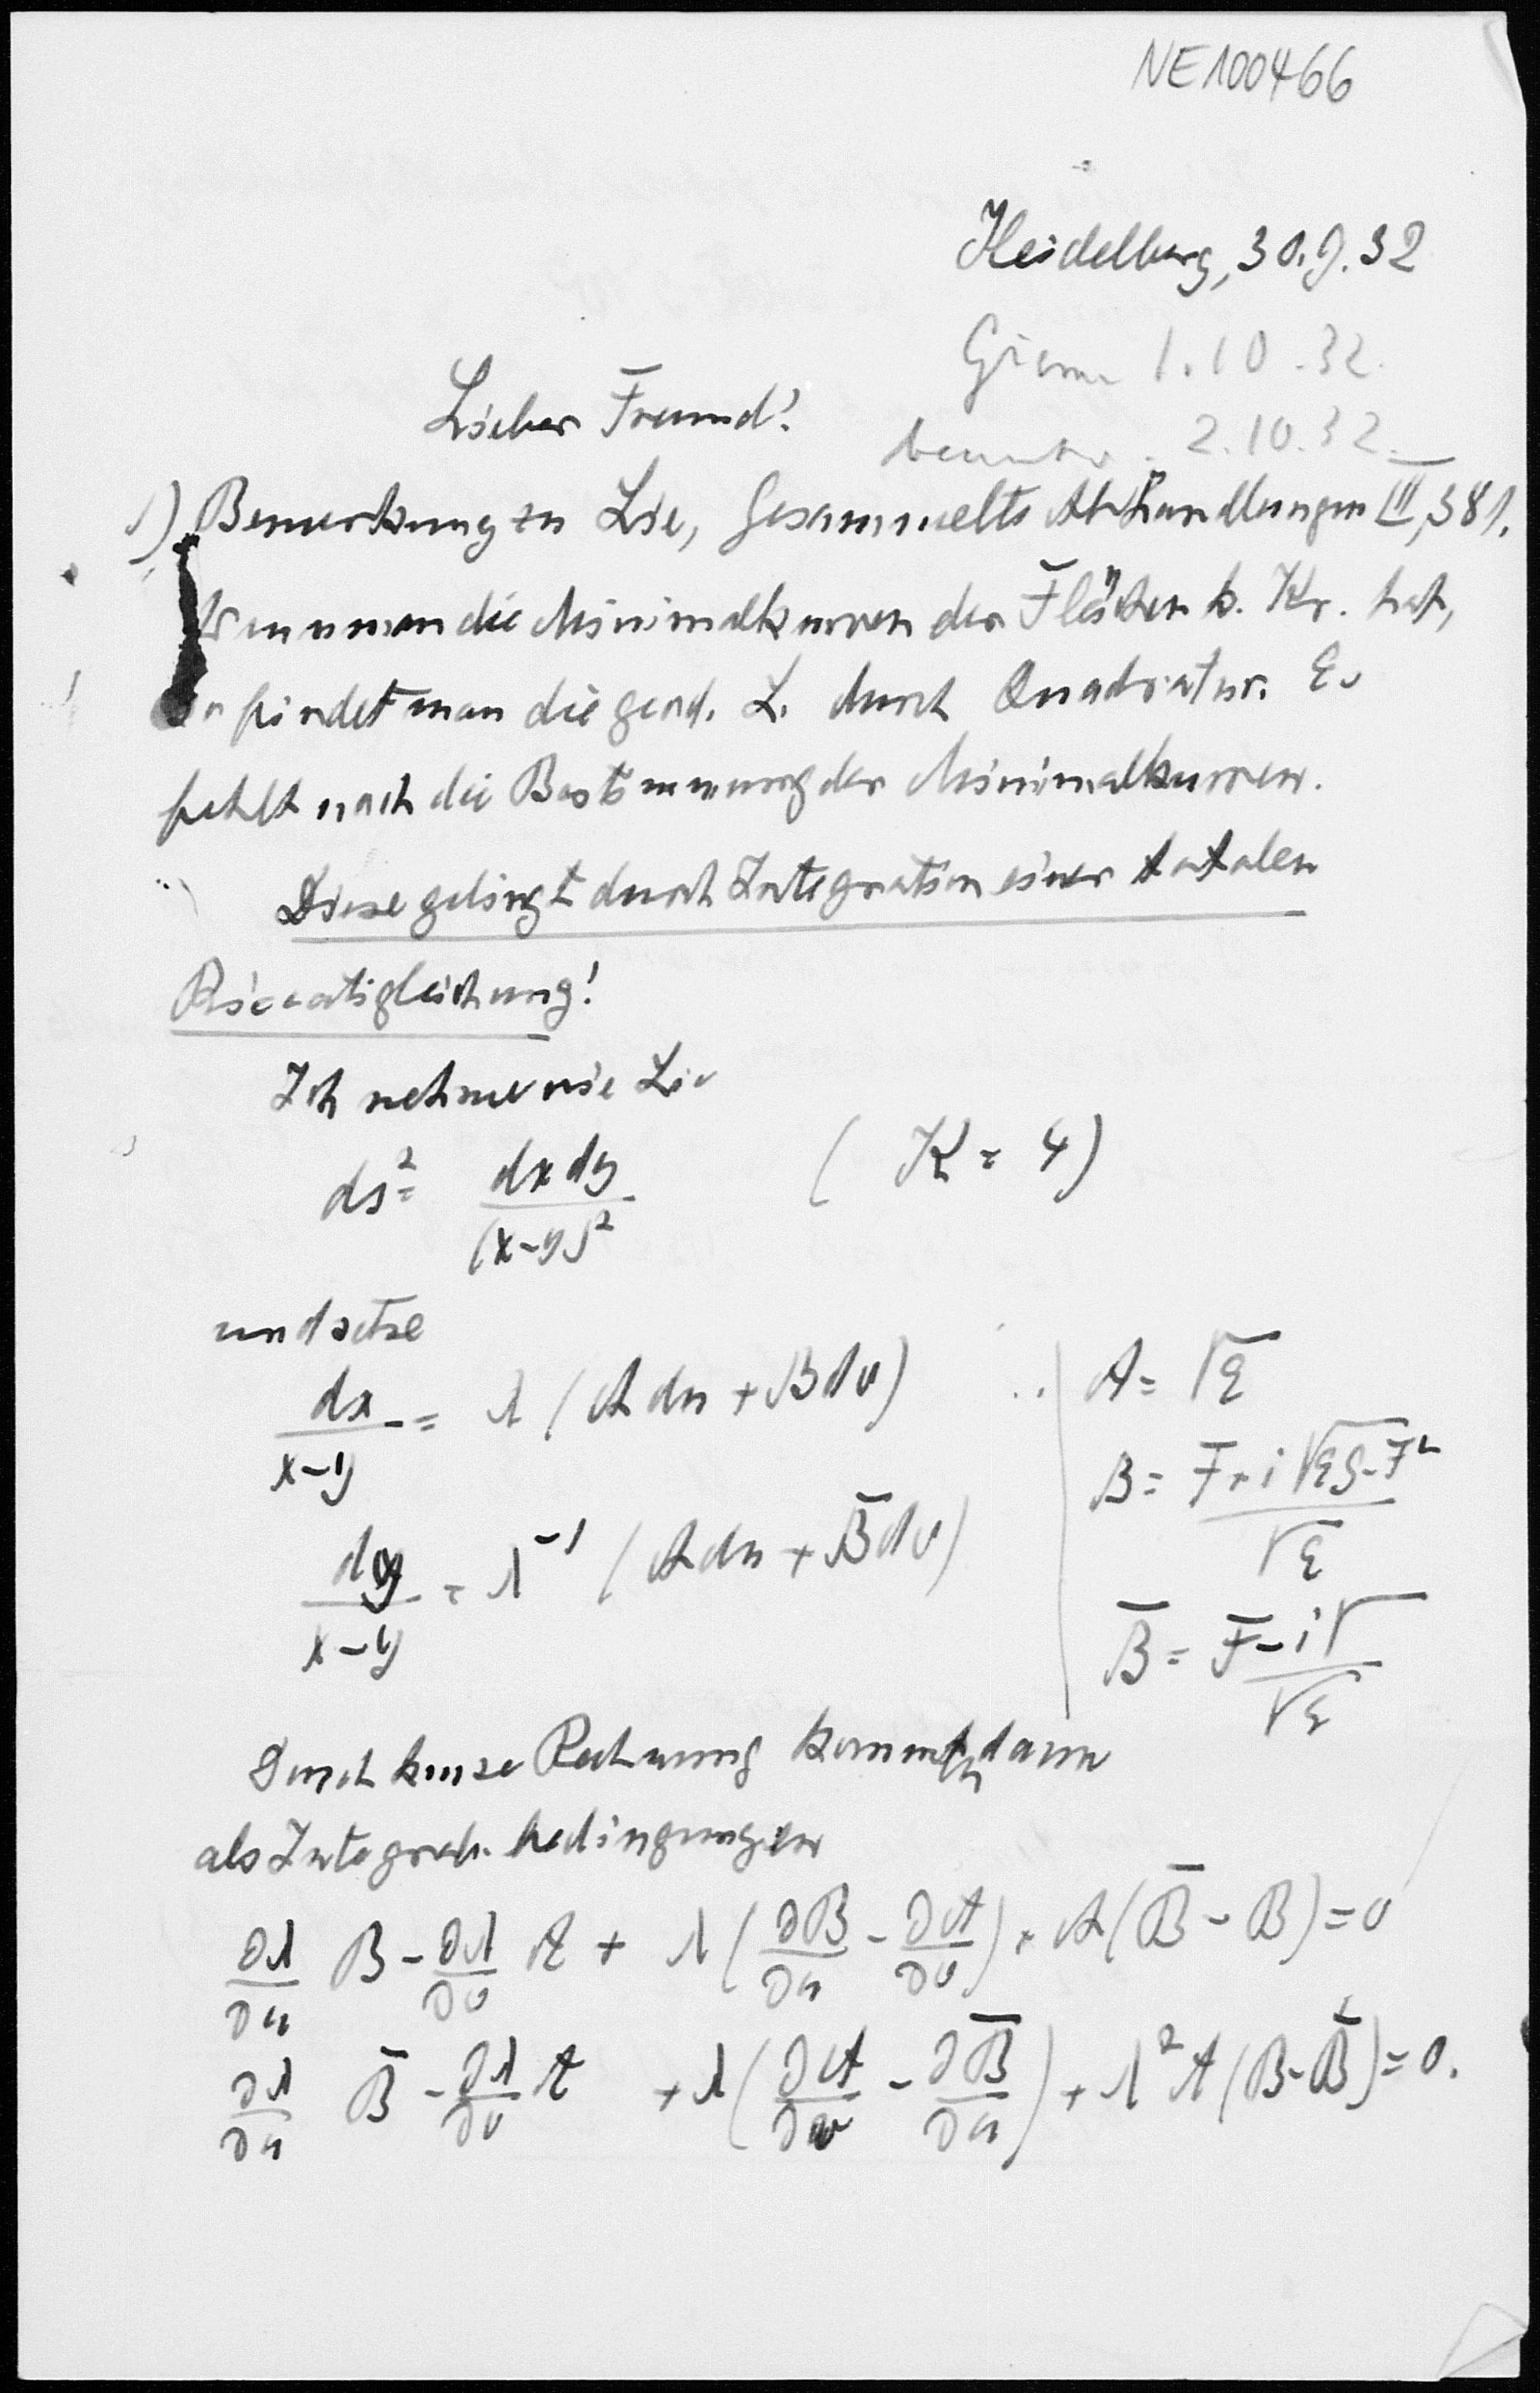 NE100466
Heidelberg, 30.9.32
1.10.32.
Lieber Freund!
2.10.32.
1) Bemerkung zu Lie, Gesammelte Abhandlungen III, 381.
Wenn man die Minimalkurven der Flächen k. Kr. hat,
so findet man die geod. L. durch Quadratur. Es
fehlt noch die Bestimmung der Minimalkurven.
Diese gelingt durch Integration einer totalen
Riccatigleichung!
Ich nehme wie Lie
ds² = dx dy / (x-y)² ( K = 4)
und setze
dx / (x-y) = λ (A du + B dv) A = √E
B = (F + i √(EG-F²)) / √E
dy / (x-y) = λ⁻¹ (A du + B̄ dv)
B̄ = (F - i √) / √E
Durch kurze Rechnung kommen dann
als Integrab. bedingungen
∂λ/∂u B - ∂λ/∂v A + λ (∂B/∂u - ∂A/∂v) + A (B̄ - B) = 0
∂λ/∂u B̄ - ∂λ/∂v A + λ (∂A/∂v - ∂B̄/∂u) + λ² A (B - B̄) = 0.